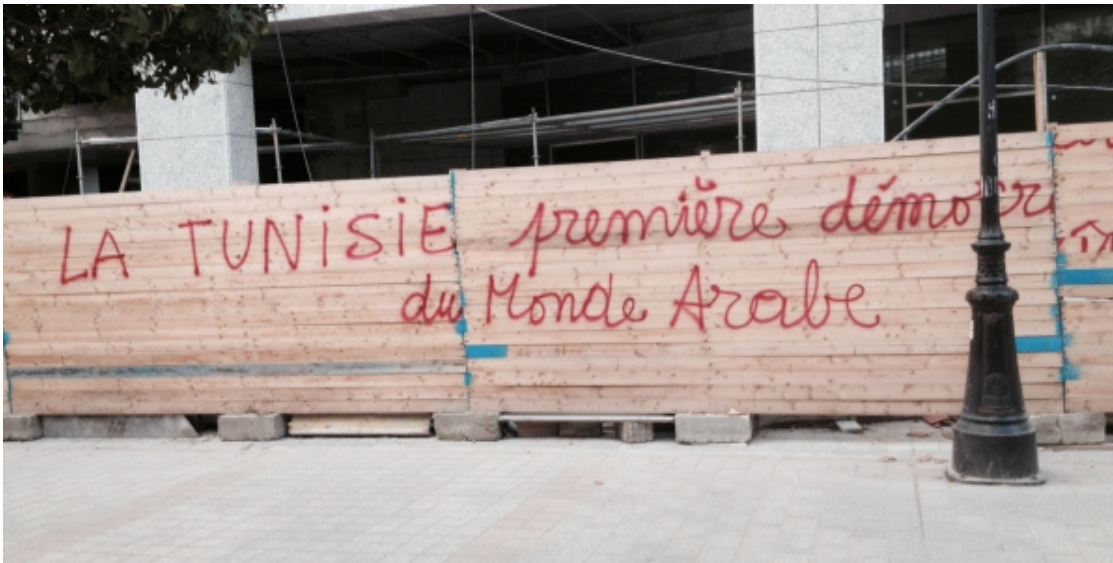 LA TUNISIE première démocr
du Monde Arabe